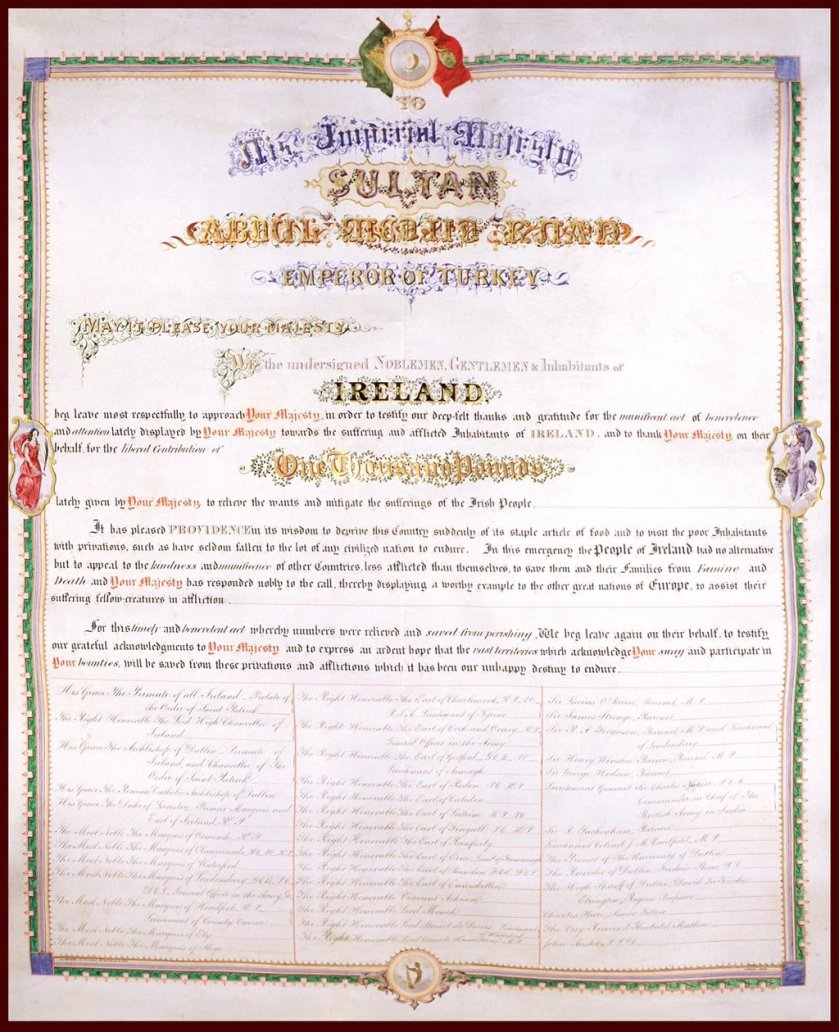 TO
His Imperial Majesty
SULTAN
ABDUL MEDJID KHAN
EMPEROR OF TURKEY
MAY IT PLEASE YOUR MAJESTY
We the undersigned NOBLEMEN, GENTLEMEN & Inhabitants of
IRELAND,
beg leave most respectfully to approach Your Majesty, in order to testify our deep-felt thanks and gratitude for the munificent act of benevolence
and attention lately displayed by Your Majesty towards the suffering and afflicted Inhabitants of IRELAND, and to thank Your Majesty on their
behalf, for the liberal Contribution of
One Thousand Pounds
lately given by Your Majesty, to relieve the wants and mitigate the sufferings of the Irish People.
It has pleased PROVIDENCE in its wisdom to deprive this Country suddenly of its staple article of food and to visit the poor Inhabitants
with privations, such as have seldom fallen to the lot of any civilized nation to endure. In this emergency the People of Ireland had no alternative
but to appeal to the kindness and munificence of other Countries, less afflicted than themselves, to save them and their Families from Famine and
Death and Your Majesty has responded nobly to the call, thereby displaying a worthy example to the other great nations of Europe, to assist their
suffering fellow-creatures in affliction.
For this timely and benevolent act whereby numbers were relieved and saved from perishing, We beg leave again on their behalf, to testify
our grateful acknowledgments to Your Majesty and to express an ardent hope that the vast territories which acknowledge Your sway and participate in
Your bounties, will be saved from these privations and afflictions which it has been our unhappy destiny to endure.
His Grace The Primate of all Ireland Prelate of
the Order of Saint Patrick
The Right Honorable The Lord High Chancellor of
Ireland
His Grace The Archbishop of Dublin Primate of
Ireland and Chancellor of The
Order of Saint Patrick
His Grace The Roman Catholic Archbishop of Dublin
His Grace The Duke of Leinster, Premier Marquis and
Earl of Ireland
The Most Noble The Marquis of Ormonde
The Most Noble The Marquis of Clanricarde
The Most Noble The Marquis of Waterford
The Most Noble The Marquis of Londonderry
General Officer in the Army
The Most Noble The Marquis of Headfort
Lieutenant of County Cavan
The Most Noble The Marquis of Ely
The Most Noble The Marquis of Sligo
The Right Honorable The Earl of Charlemont
Lieutenant of Tyrone
The Right Honorable The Earl of Cork and Orrery
General Officer in the Army
The Right Honorable The Earl of Gosford
Lieutenant of Armagh
The Right Honorable The Earl of Roden
The Right Honorable The Earl of Caledon
The Right Honorable The Earl of Leitrim
The Right Honorable The Earl of Fingall
The Right Honorable The Earl of Ranfurly
The Right Honorable The Earl of Erne
The Right Honorable The Earl of Bandon
The Right Honorable The Earl of Enniskillen
The Right Honorable Viscount
The Right Honorable Lord
The Right Honorable Lord Stuart de Decies Lieutenant
of Waterford
The Right Honorable Lord
Sir Lucius O'Brien, Baronet, M.P.
Sir James Stronge, Baronet
Sir R. A. Ferguson, Baronet, M.P. and Lieutenant
of Londonderry
Sir Henry Winston Barron, Baronet, M.P.
Sir George Hodson, Baronet
Lieutenant General Sir Charles Napier
Commander in Chief of The
British Army in India
Baronet
Lieutenant Colonel J. M. Caulfeild, M.P.
The Provost of The University of Dublin
The Recorder of Dublin, Frederic Shaw
The High Sheriff of Dublin, David
Regius Professor
Charles Hare, Senior Fellow
The Very Reverend Theobald Mathew
John